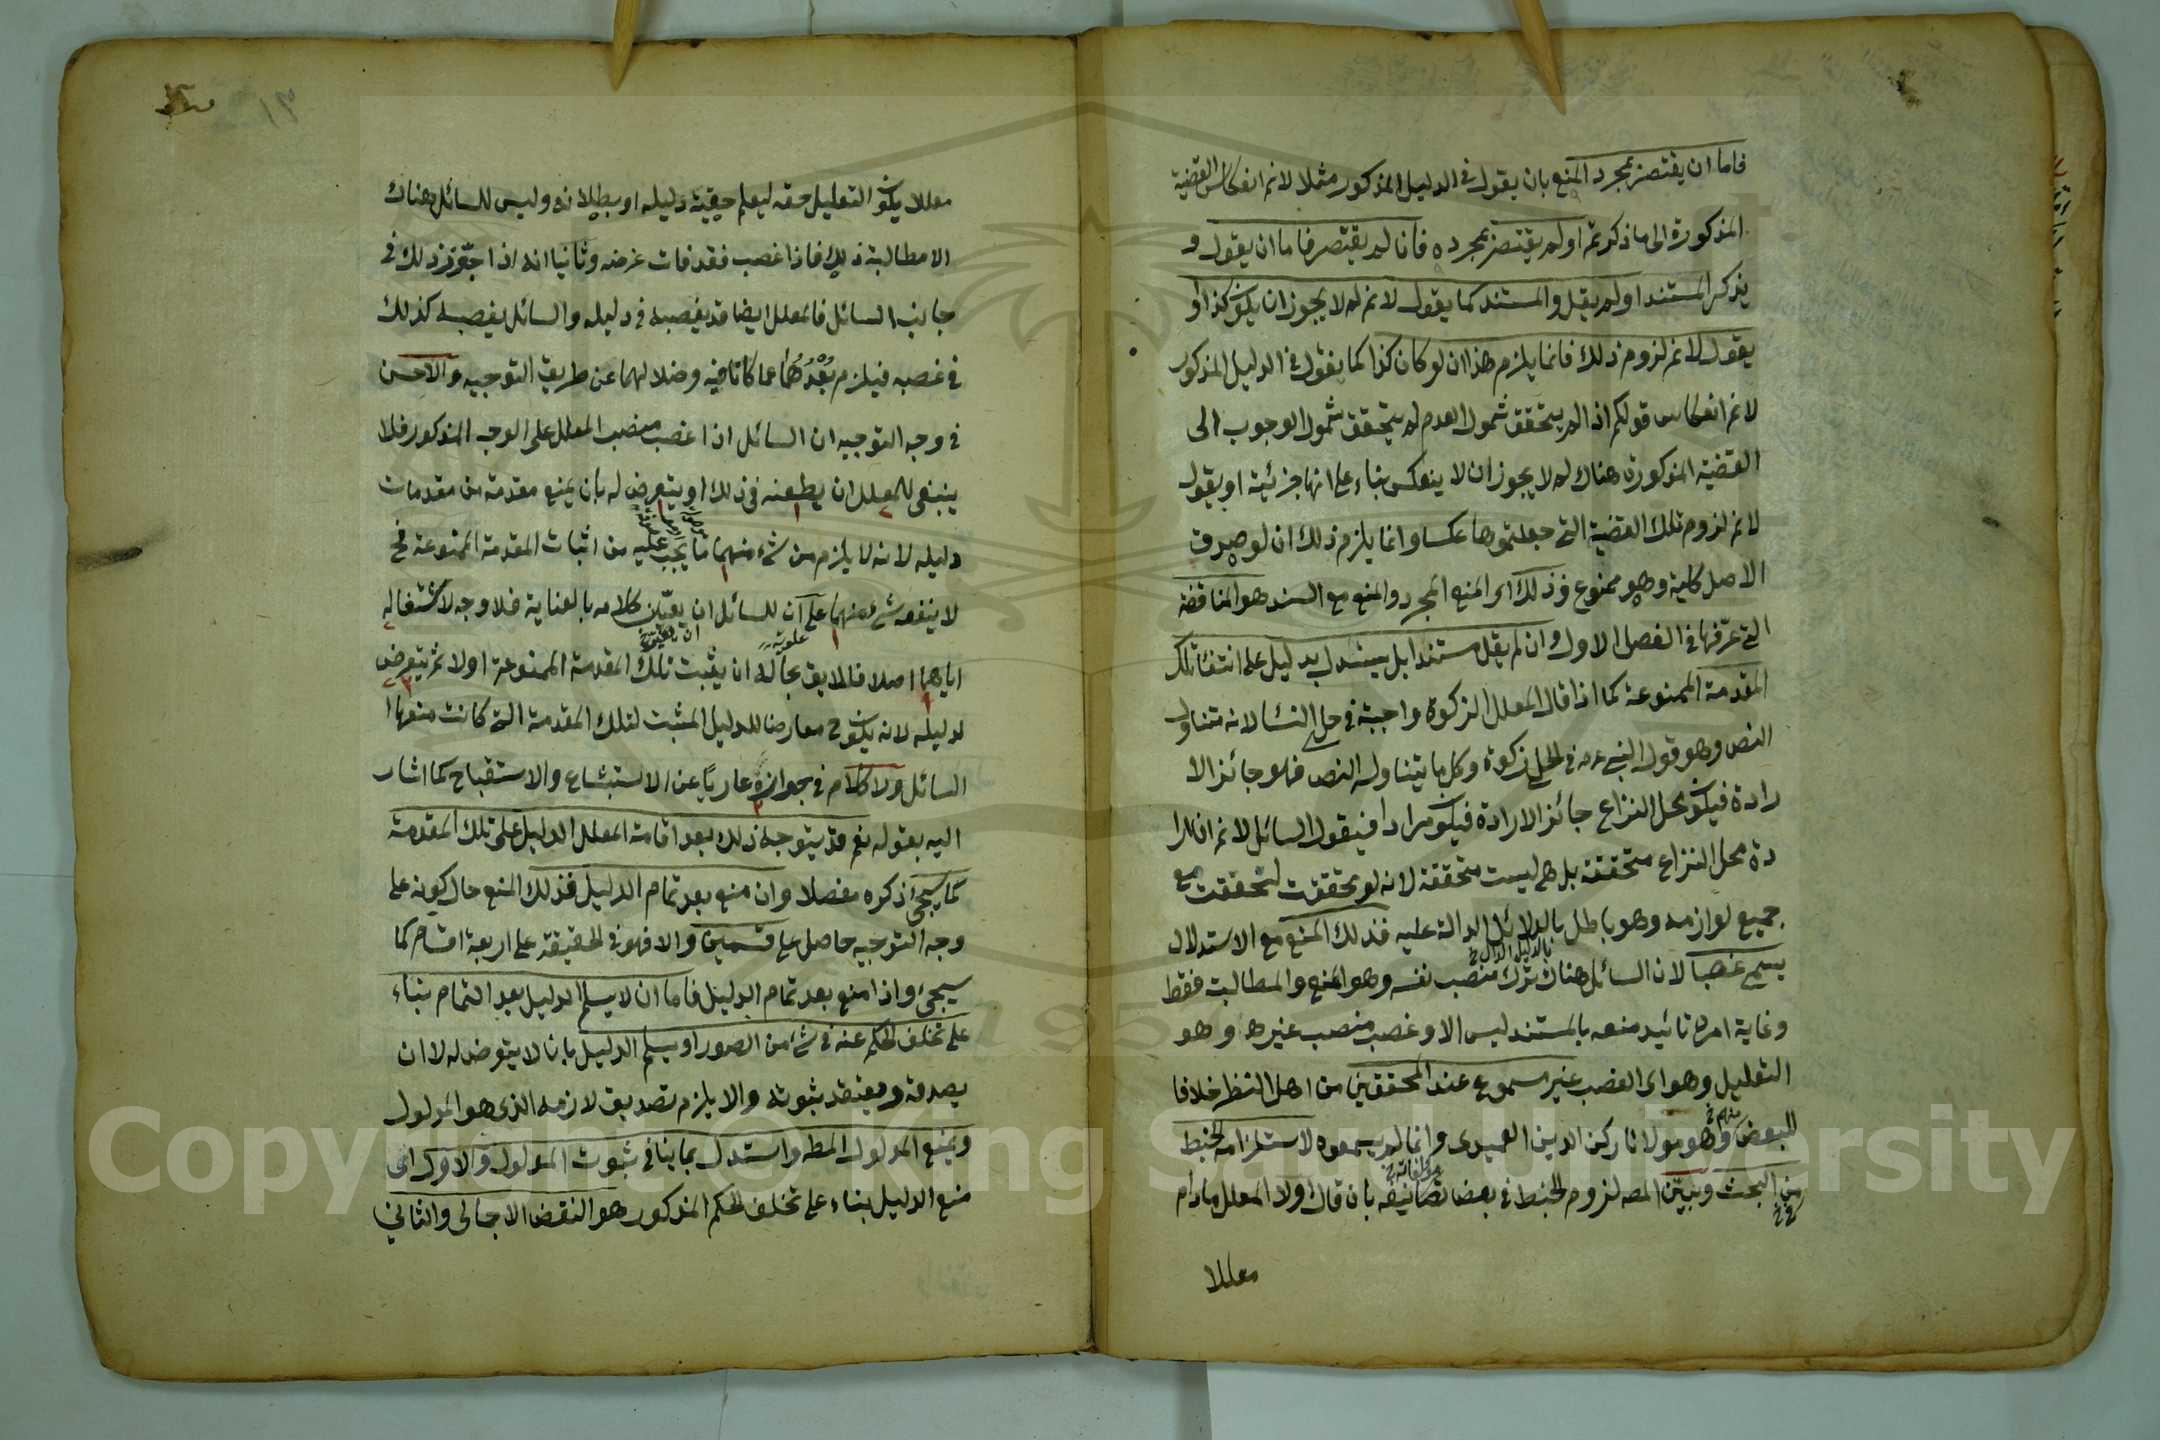 فاما ان يقتصر بمجرد المنع بان يقول في الدليل المذكور مثلا لانم انعكاس القضية
المذكورة الى ما ذكرتم او لم يقتصر بمجرده فان لم يقتصر فاما ان يقول و
يذكر المستند او لم يقل والمستند كما يقول لانم لم لا يجوز ان يكون كذا او
يقول لانم لزوم ذلك فانما يلزم هذا ان لو كان كذا كما يقول في الدليل المذكور
لانم انعكاس قولكم اذا لم يتحقق شمول العدم لم يتحقق شمول الوجوب الى
القضية المذكورة هناك لم لا يجوز ان لا ينعكس بناء على انها جزئية او يقول
لانم لزوم تلك القضية التي جعلتموها عكسا وانما يلزم ذلك ان لو صدق
الاصل كلية وهو ممنوع فذلك اي المنع المجرد والمنع مع السند هو المناقضة
التي عرّفها في الفصل الاول وان لم يقل مستندا بل يستدل بدليل على انتفاء تلك
المقدمة الممنوعة كما اذا قال المعلل الزكوة واجبة في حلي النساء لانه متناول
النص وهو قول النبي عم في الحلي زكوة وكل ما يتناوله النص فهو جائز الا
رادة فيكون محل النزاع جائز الارادة فيكون مرادا فيقول السائل لانم ان ارا
دة محل النزاع متحققة بل هي ليست متحققة لانه لو تحققت لتحققت مع
جميع لوازمه وهو باطل بالدلائل الدالة عليه فذلك المنع مع الاستدلال
بالدليل الدال خ
يسمى غصبا لان السائل هناك ترك منصب نفسه وهو المنع والمطالبة فقط
وغاية امره تائيد منعه بالمستند ليس الا وغصب منصب غيره وهو
التعليل وهو اي الغصب غير مسموع عند المحققين من اهل النظر خلافا
منهم خ
للبعض وهو مولانا ركن الدين العميدي وانما لم يسمعوه لاستلزامه الخبط
مؤلفاته خ
من البحث وبيّن المصـ لزوم الخبط في بعض تصانيفه بان قال اولا المعلل مادام
معللا
معللا يكون التعليل حقه ليعلم حقية دليله او بطلانه وليس للسائل هناك
الا مطالبة ذلك فاذا غصب فقد فات غرضه وثانيا انه اذا جوّز ذلك في
جانب السائل فالمعلل ايضا قد يغصبه في دليله والسائل يغصبه كذلك
في غصبه فيلزم بُعْدُهُما عما كانا فيه وضلالهما عن طريق التوجيه والاحسن
في وجه التوجيه ان السائل اذا غصب منصب المعلل على الوجه المذكور فلا
ينبغي للمعلل ان يطعنه في ذلك او يتعرض له بان يمنع مقدمة من مقدمات
دليله لانه لا يلزم من شيء منهما ما يجب عليه من اثبات المقدمة الممنوعة فح
لا ينفعه شيء منهما على ان للسائل ان يعيّن كلامه بالعناية فلا وجه لاشتغاله
اياهما اصلا فاللايق بحاله ان يثبت تلك المقدمة الممنوعة اولا ثم يتعرض
لدليله لانه يكون ح معارضا للدليل المثبت لتلك المقدمة التي كانت منعها
السائل ولا كلام في جوازه عاريًا عن الاستبشاع والاستقباح كما اشار
اليه بقوله نعم قد يتوجه ذلك بعد اقامة المعلل الدليل على تلك المقدمة
كما يسيجئ ذكره مفصلا وان منع بعد تمام الدليل فذلك المنع حال كونه على
وجه التوجيه حاصل على قسمين والا فهو في الحقيقة على اربعة اقسام كما
سيجئ واذا منع بعد تمام الدليل فاما ان لا يسلم الدليل بعد التمام بناء
على تخلف الحكم عنه في شيء من الصور او يسلم الدليل بان لا يتعرض له لا ان
يصدقه ويعتقد ثبوته والا يلزم تصديق لازمه الذي هو المدلول
ويمنع المدلول المطـ واستدل بما ينافي ثبوت المدلول والاول اي
منع الدليل بناء على تخلف الحكم المذكور هو النقض الاجمالي والثاني
Copyright © King Saud University
1957